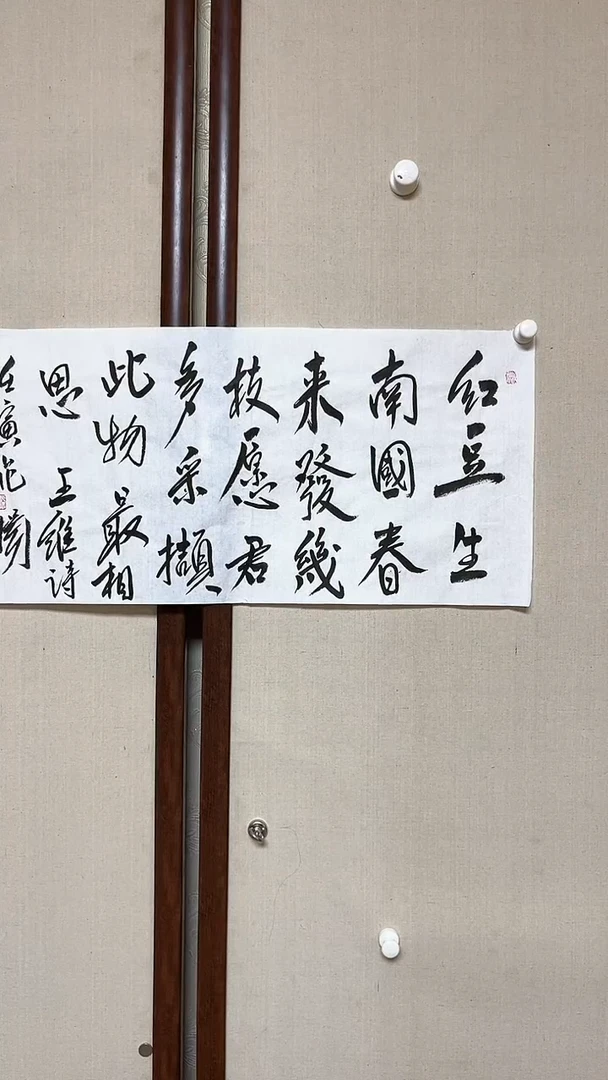 红豆生
南國春
来發幾
枝愿君
多采擷
此物最相
思 王維詩
壬寅